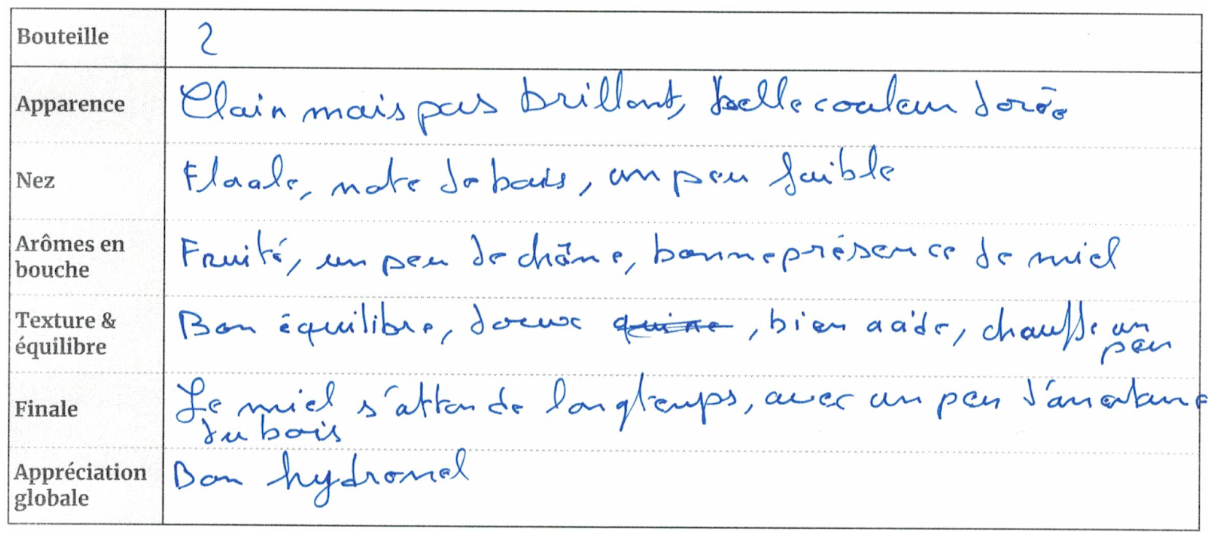 Bouteille 2
Apparence Clair mais pas brillant, belle couleur dorée
Nez Florale, note de bois, un peu faible
Arômes en
bouche
Fruité, un peu de chêne, bonne présence de miel
Texture &
équilibre
Bon équilibre, doux, bien acide, chauffe un
peu
Finale Le miel s'attarde longtemps, avec un peu d'amertume
du bois
Appréciation
globale
Bon hydromel